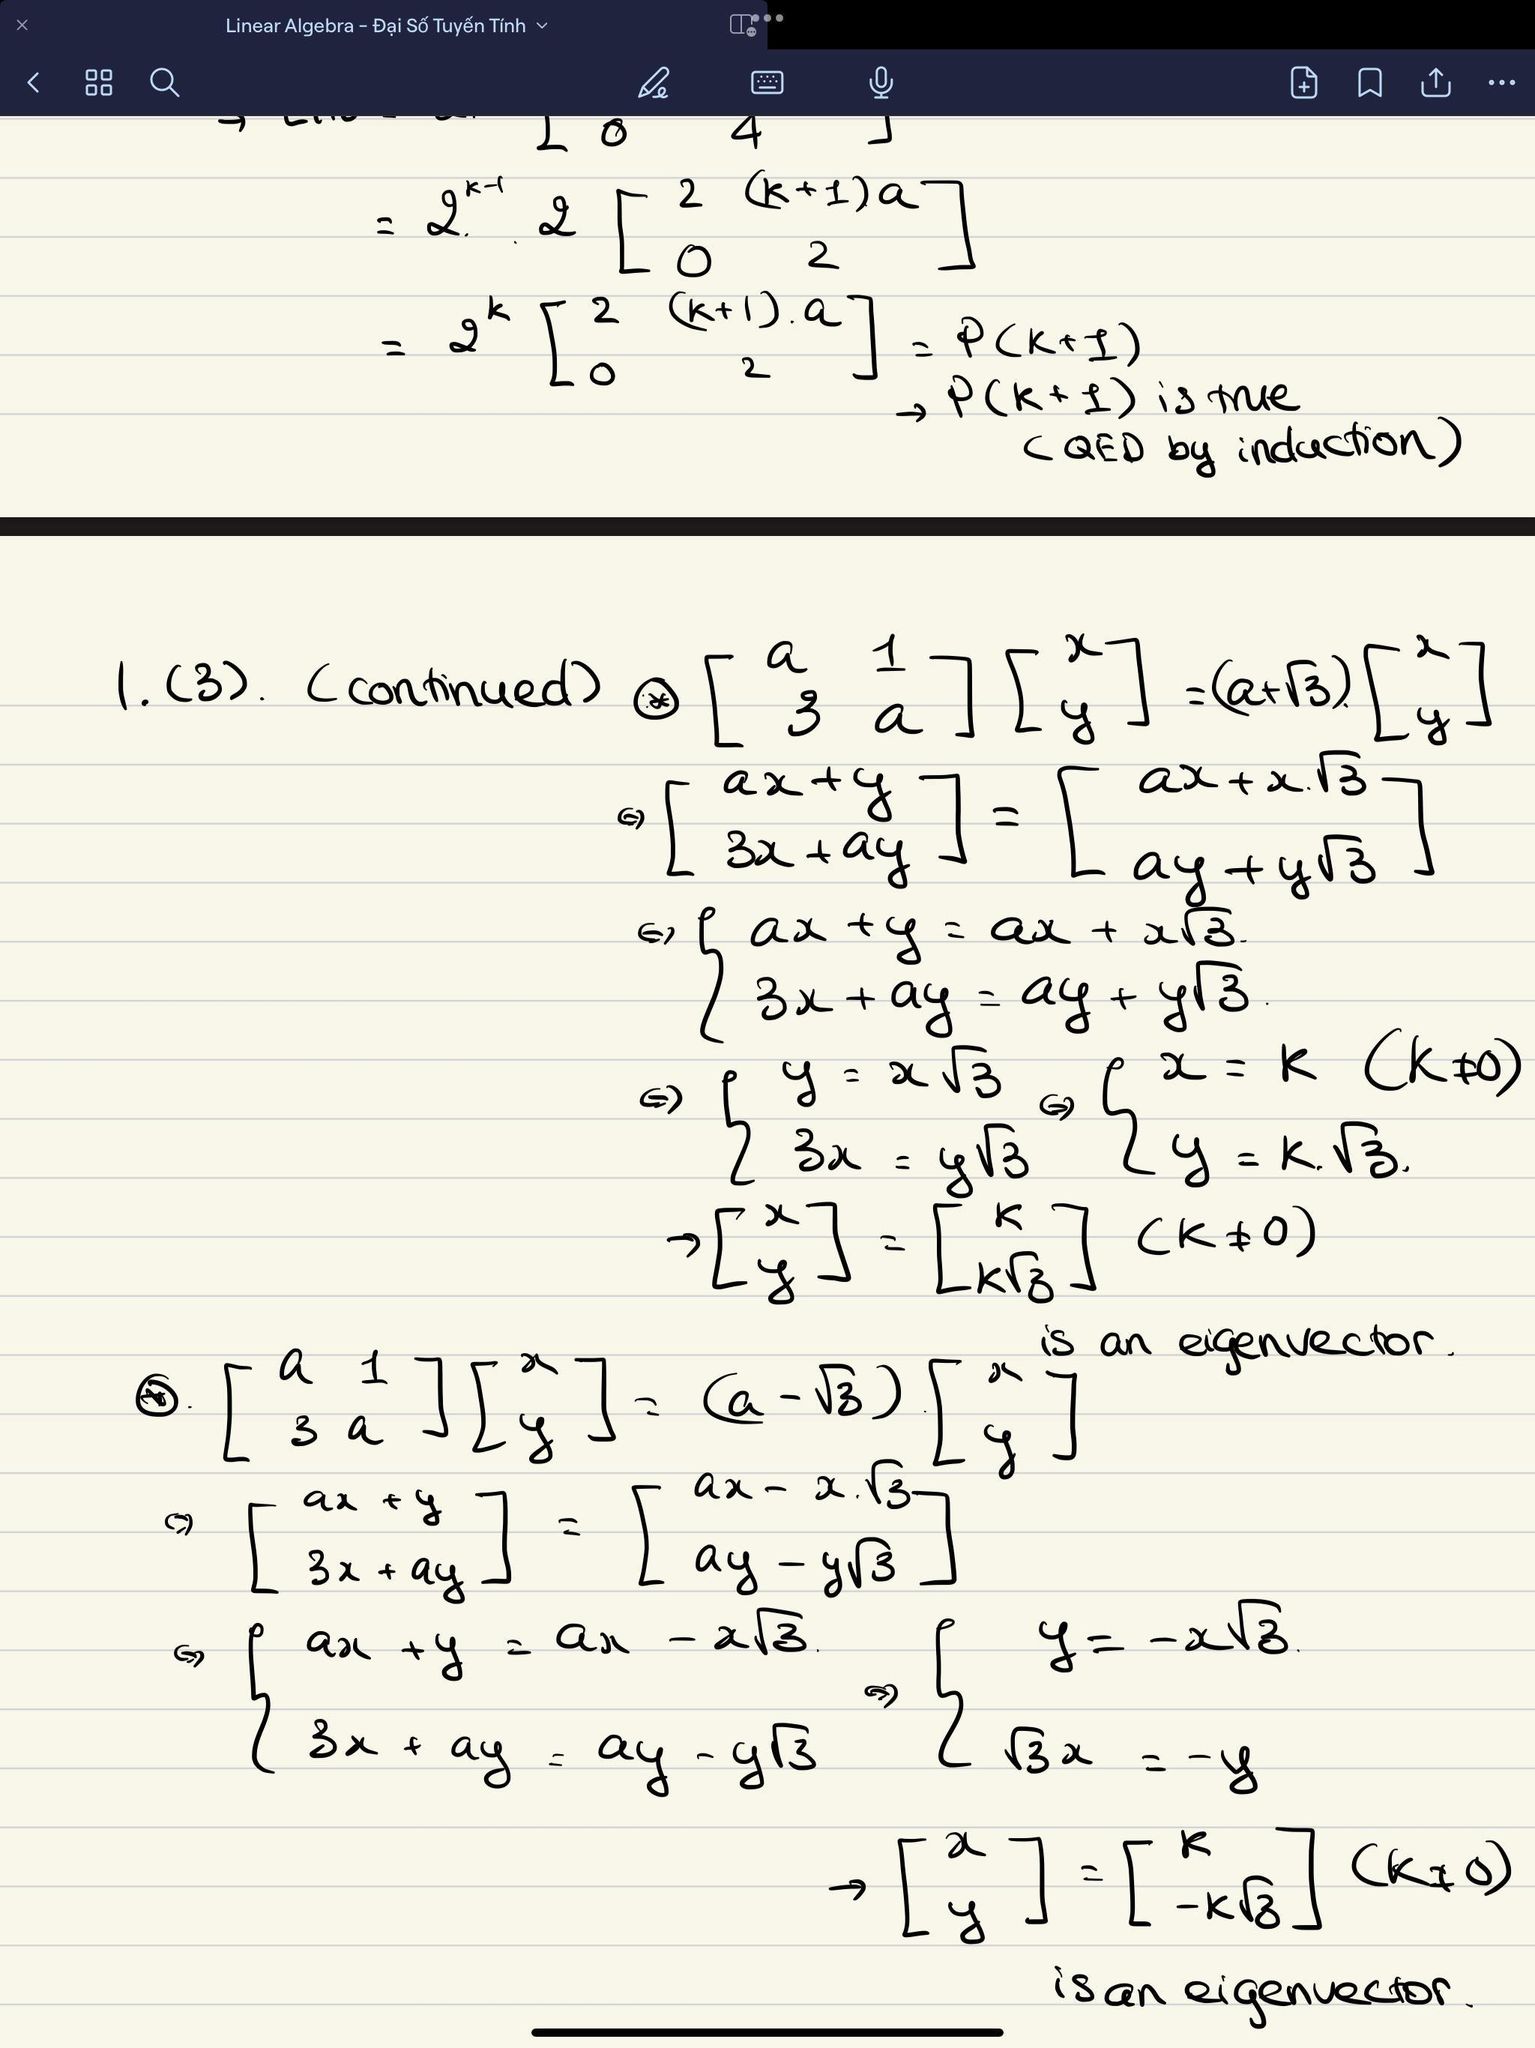 Linear Algebra - Đại Số Tuyến Tính
→
[ 0 4 ]
= 2^{k-1} . 2 [ 2 (k+1)a ; 0 2 ]
= 2^k [ 2 (k+1).a ; 0 2 ] = P(k+1)
→ P(k+1) is true
(QED by induction)
1.(3). (continued) ⊛ [ a 1 ; 3 a ] [ x ; y ] = (a+√3). [ x ; y ]
⇔ [ ax+y ; 3x+ay ] = [ ax+x.√3 ; ay+y√3 ]
⇔ { ax+y = ax + x√3.
3x+ay = ay + y√3.
⇔ { y = x√3 ⇔ { x = k (k≠0)
3x = y√3 y = k.√3.
→ [ x ; y ] = [ k ; k√3 ] (k≠0)
is an eigenvector.
⊛. [ a 1 ; 3 a ] [ x ; y ] = (a-√3). [ x ; y ]
⇔ [ ax+y ; 3x+ay ] = [ ax - x.√3 ; ay - y√3 ]
⇔ { ax+y = ax - x√3. ⇔ { y = -x√3.
3x + ay = ay - y√3 √3x = -y
→ [ x ; y ] = [ k ; -k√3 ] (k≠0)
is an eigenvector.